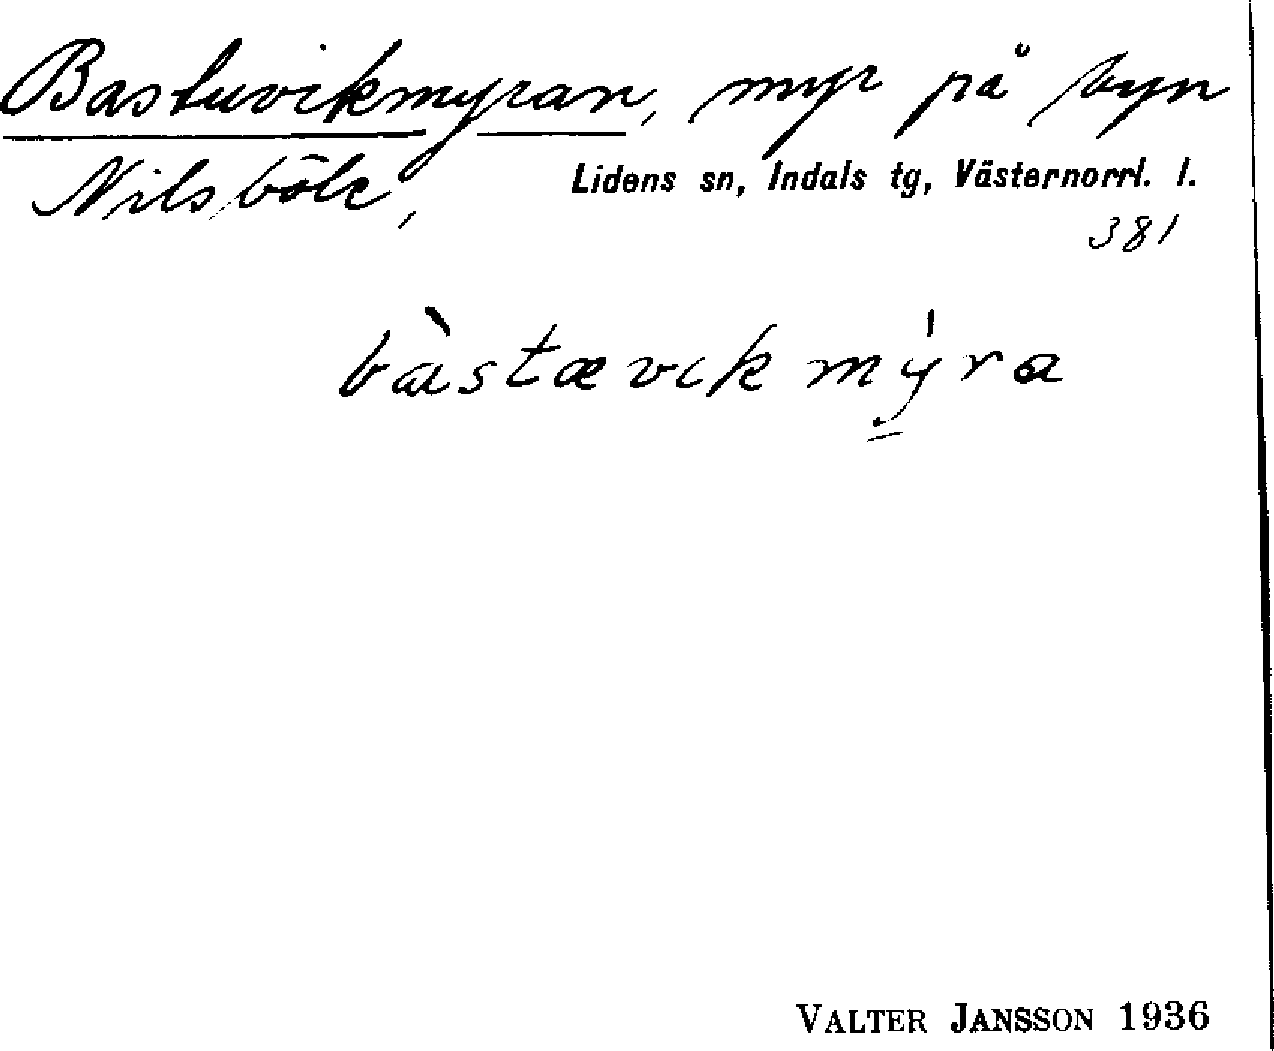 Bastuvikmyran, myr på byn
Nilsböle, Lidens sn, Indals tg, Västernorrl. l.
381
bàstævikmýra
VALTER JANSSON 1936